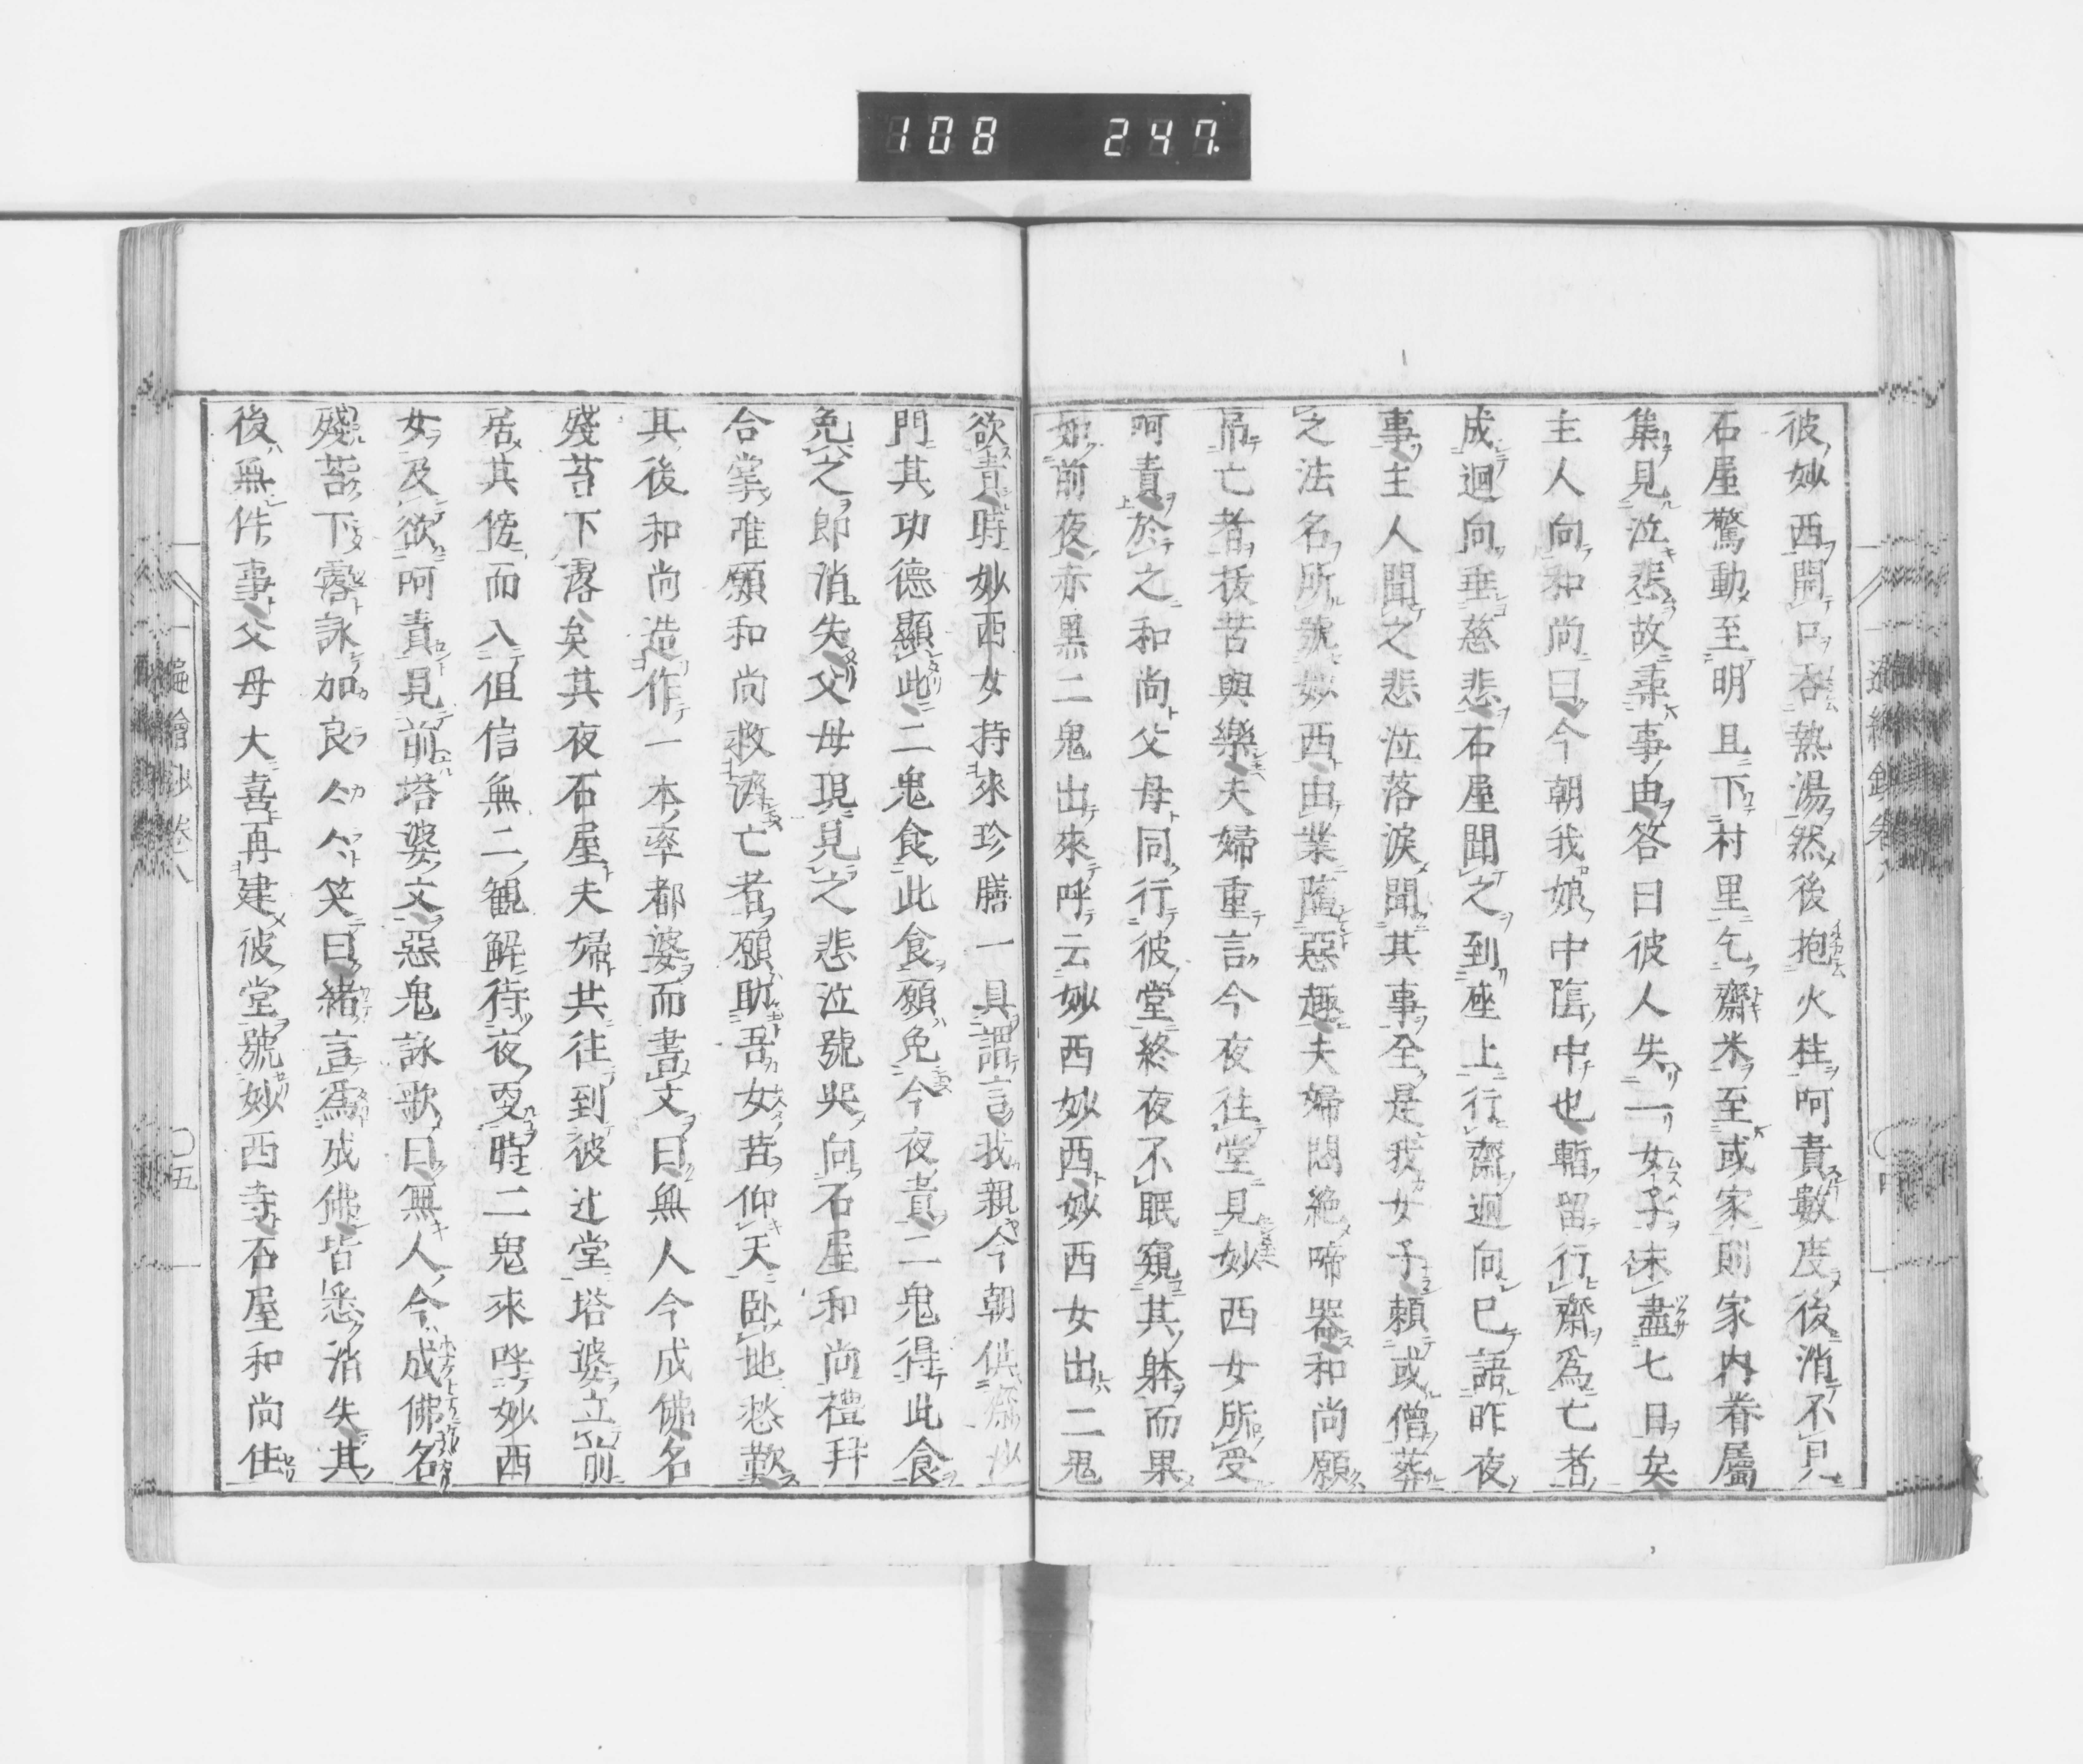 108 247
彼妙西開口吞熱湯然後抱火柱呵責數度後消不見
石屋驚動至明且下村里乞齋米至或家則家内眷屬
集見泣悲故棄事由答曰彼人失一女子未盡七日矣
主人向和尚曰今朝我娘中陰中也暫留行齋爲亡者
成迴向垂慈悲石屋聞之到座上行齋迴向已語昨夜
事主人聞之悲泣落淚聞其事全是我女子賴或僧葬
之法名所號妙西由業墮惡趣夫婦悶絶啼器和尚願
吊亡者拔苦與樂夫婦重言今夜往堂見妙西女所受
呵責於之和尚父母同行彼堂終夜不眠窺其躰而果
如前夜赤黒二鬼出來呼云妙西妙西妙西女出二鬼
欲責時妙西女持來珍膳一具謂言我親今朝供齋沙
門其功德顯此二鬼食此食願免今夜責二鬼得此食
免之即消失父母現見之悲泣號哭向石屋和尚禮拜
合掌唯願和尚救濟亡者願助吾女苦仰天臥地愁歎
其後和尚造作一本率都婆而書文曰無人今成佛名
殘苔下露矣其夜石屋夫婦共往到彼辻堂塔婆立前
居其傍而入但信無二觀解待夜更時二鬼來呼妙西
女及欲呵責見前塔婆文惡鬼詠歌曰無人今成佛名
殘苔下露詠加良々々笑曰緒言爲成佛皆悉消失其
後無件事父母大喜再建彼堂號妙西寺石屋和尚住